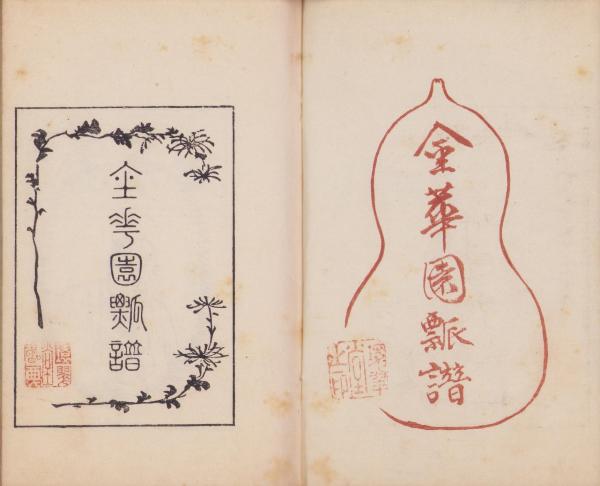 金華園瓢譜
金華園瓢譜